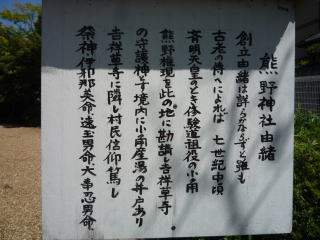 熊野神社由緒
創立由緒は詳らかならずと雖も
古老の傳へによれば 七世紀中頃
斉明天皇のとき修験道祖役の小角
熊野権現を此の地に勘請し吉祥草寺
の守護神とす境内に小角産湯の井戸あり
吉祥草寺に隣し村民信仰篤し
祭神伊邪那美命・速玉男命・大事忍男命